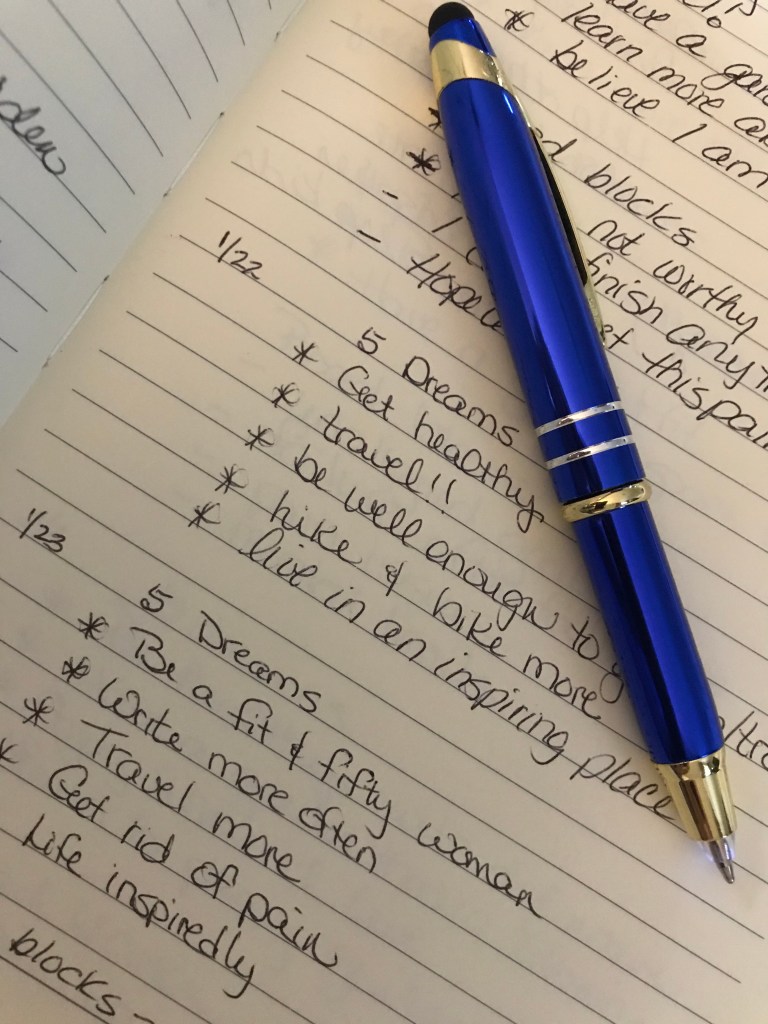 learn more
believe I am
blocks
not worthy
- I finish
- this pain
1/22
5 Dreams
* Get healthy
* travel!!
* be well enough to
* hike & bike more
* live in an inspiring place
1/23
5 Dreams
* Be a fit & fifty woman
* Write more often
* Travel more
* Get rid of pain
Life inspiredly
blocks -